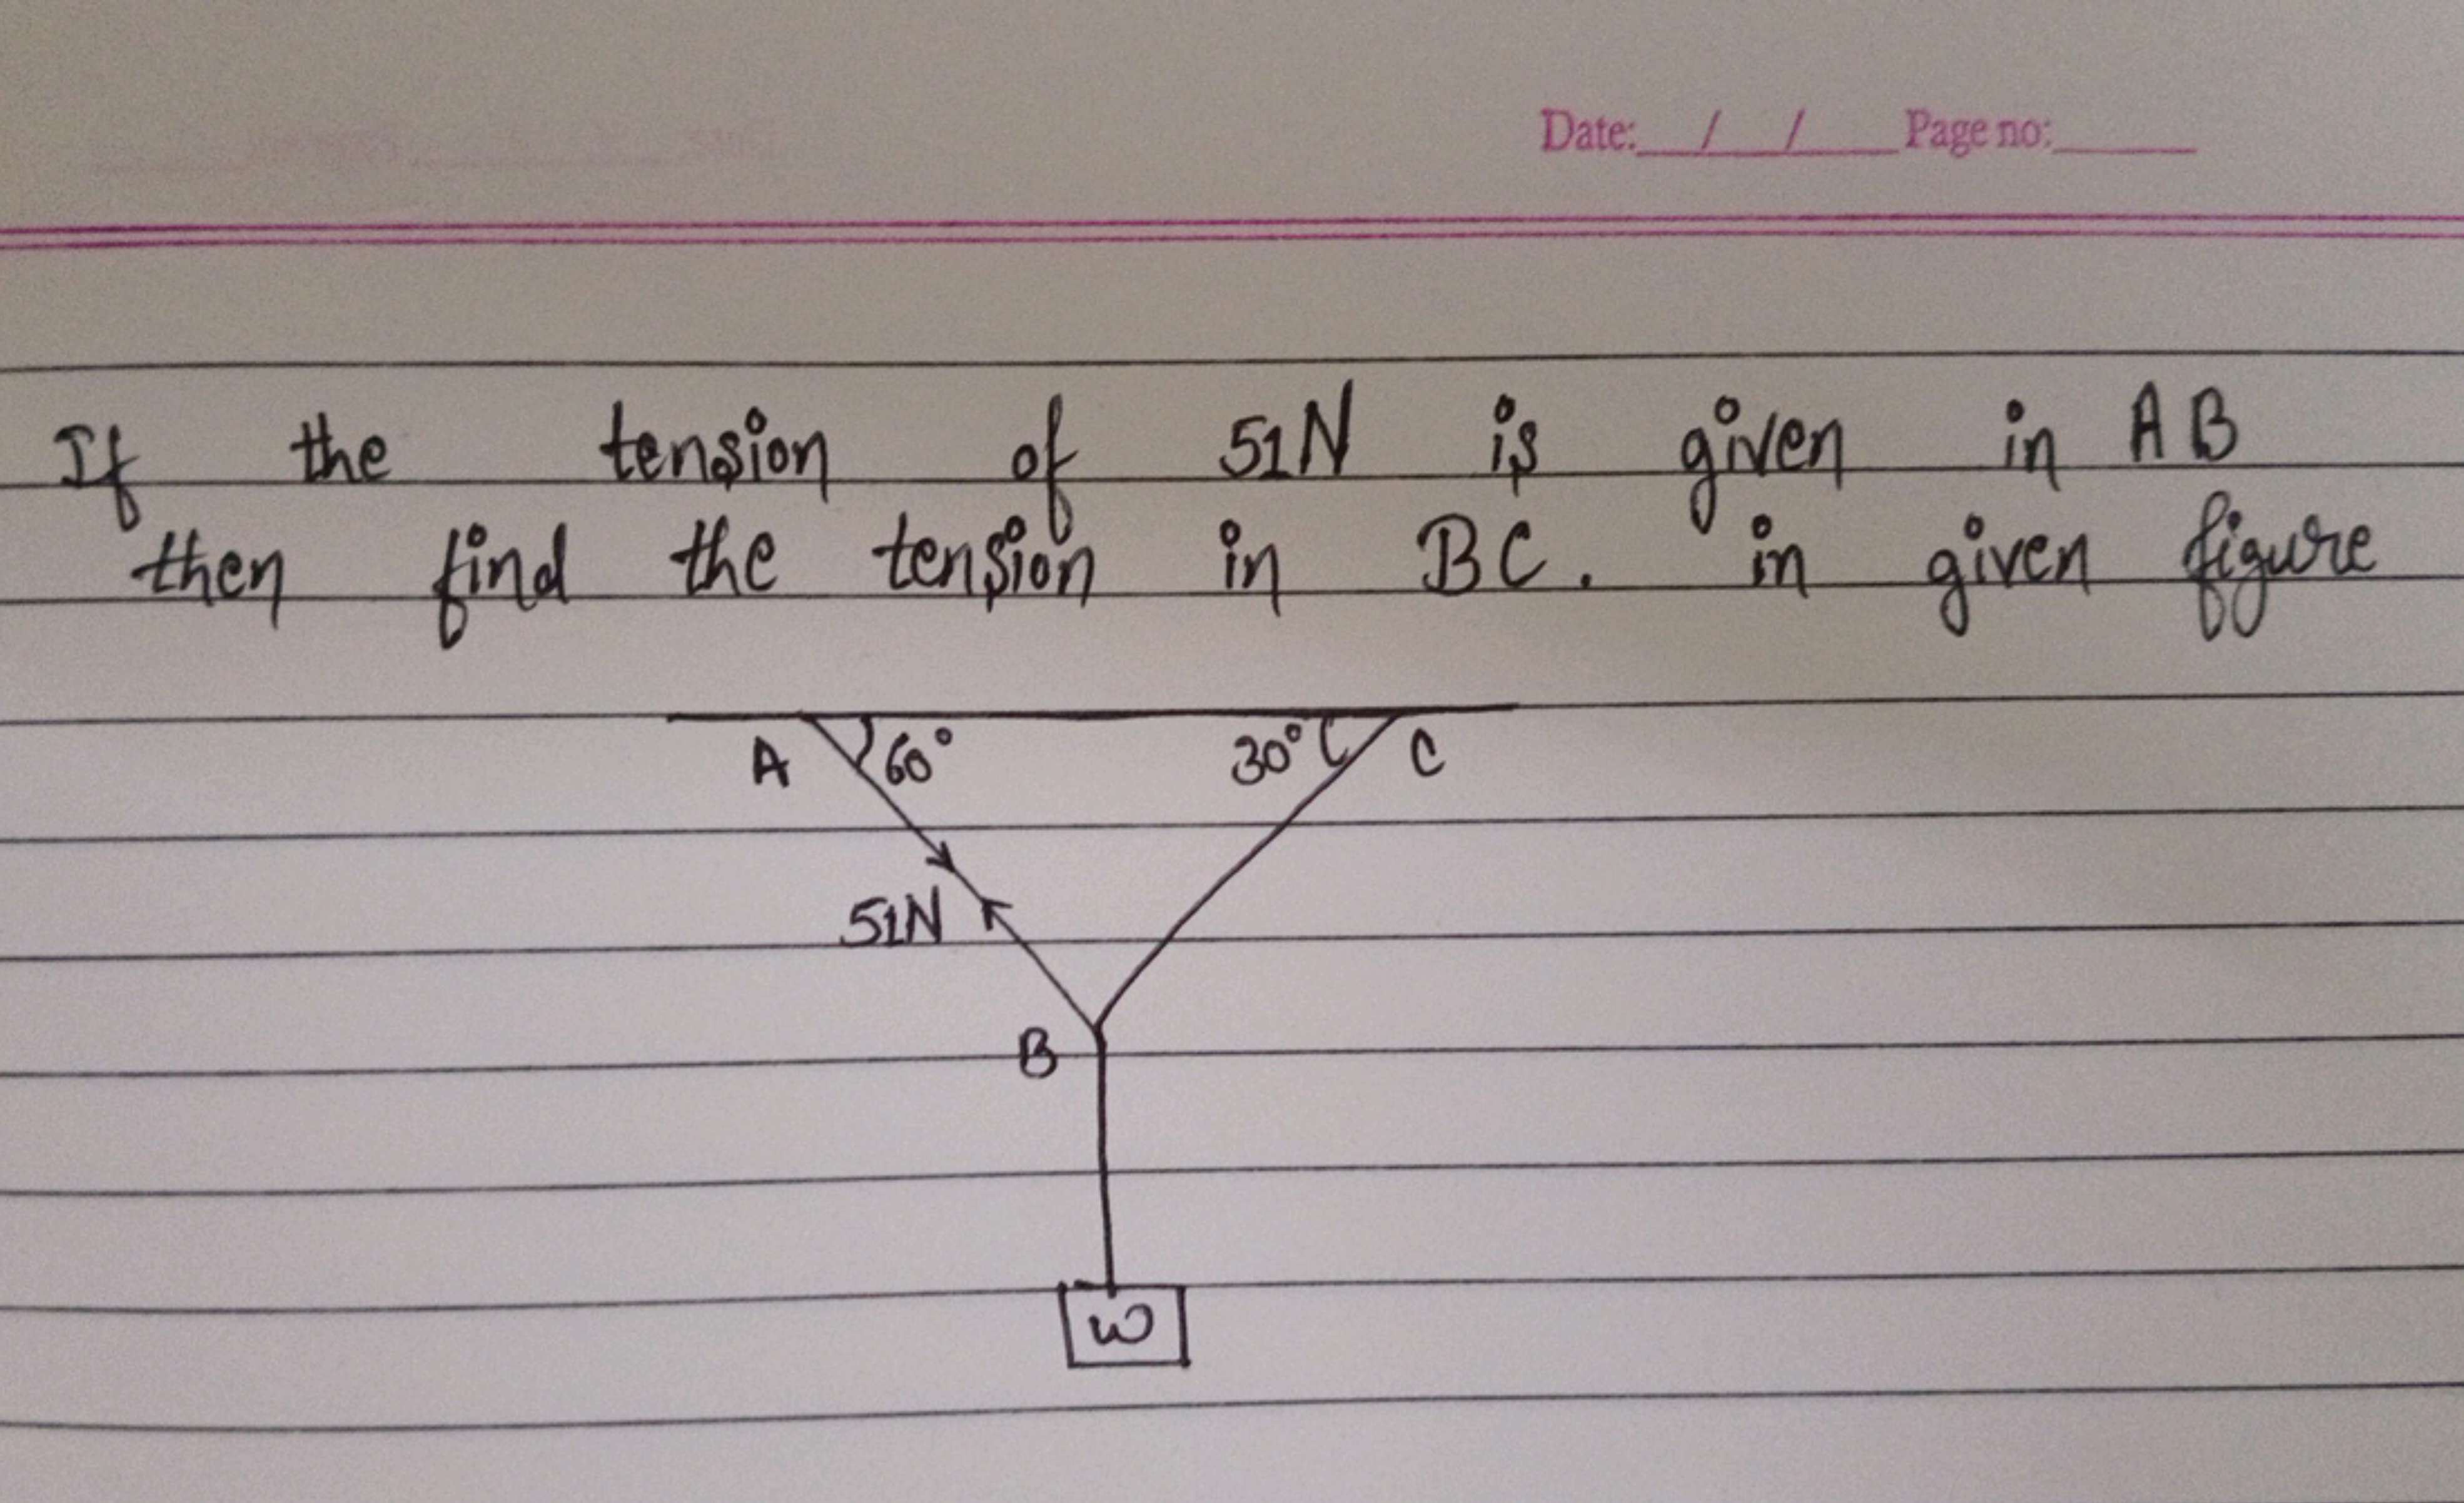 Date: / / Page no:
If the tension of 51N is given in AB
then find the tension in BC. in given figure
A 60° 30° C
51N
B
W